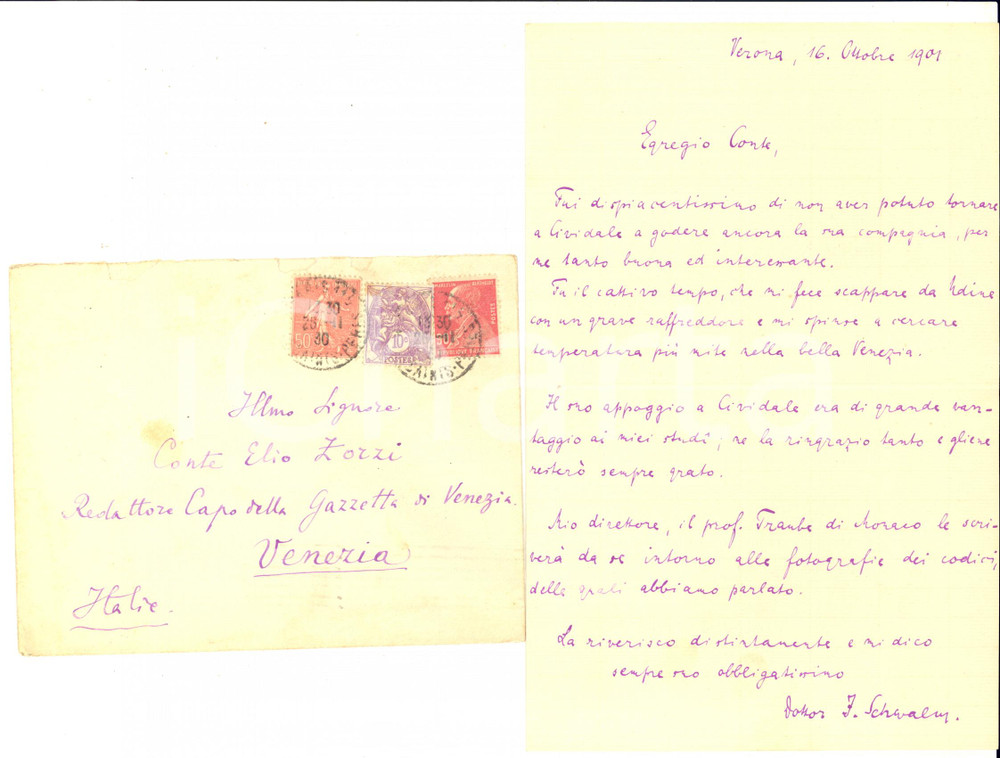 Verona, 16. Ottobre 1901
Egregio Conte,
Fui dispiacentissimo di non aver potuto tornare
a Cividale a godere ancora la sua compagnia, per
me tanto buona ed interessante.
Fu il cattivo tempo, che mi fece scappare da Udine
con un grave raffreddore e mi spinse a cercare
temperatura più mite nella bella Venezia.
Il suo appoggio a Cividale era di grande van-
taggio ai miei studî; ne la ringrazio tanto e gliene
resterò sempre grato.
Mio direttore, il prof. Traube di Monaco le scri-
verà da se intorno alle fotografie dei codici,
delle quali abbiamo parlato.
La riverisco distintamente e mi dico
sempre suo obbligatissimo
Dottor J. Schwalm.
Illmo Signore
Conte Elio Zorzi
Redattore Capo della Gazzetta di Venezia.
Venezia
Italie.
50
10c
POSTES
POSTES
30